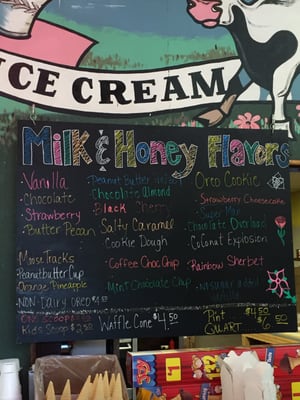 ICE CREAM
Milk & Honey Flavors
Vanilla
Chocolate
Strawberry
Butter Pecan
Moose Tracks
Peanut butter Cup
Orange Pineapple
NON-Dairy OREO
Peanut Butter
Chocolate Almond
Black Cherry
Salty Caramel
Cookie Dough
Coffee Choc Chip
Mint Chocolate Chip
Oreo Cookie
Strawberry Cheesecake
Super Man
Chocolate Overload
Coconut Explosion
Rainbow Sherbet
No sugar added
One scoop
Kids Scoop $2.50
Waffle Cone $4.50
Pint $4.50
QUART $6.50